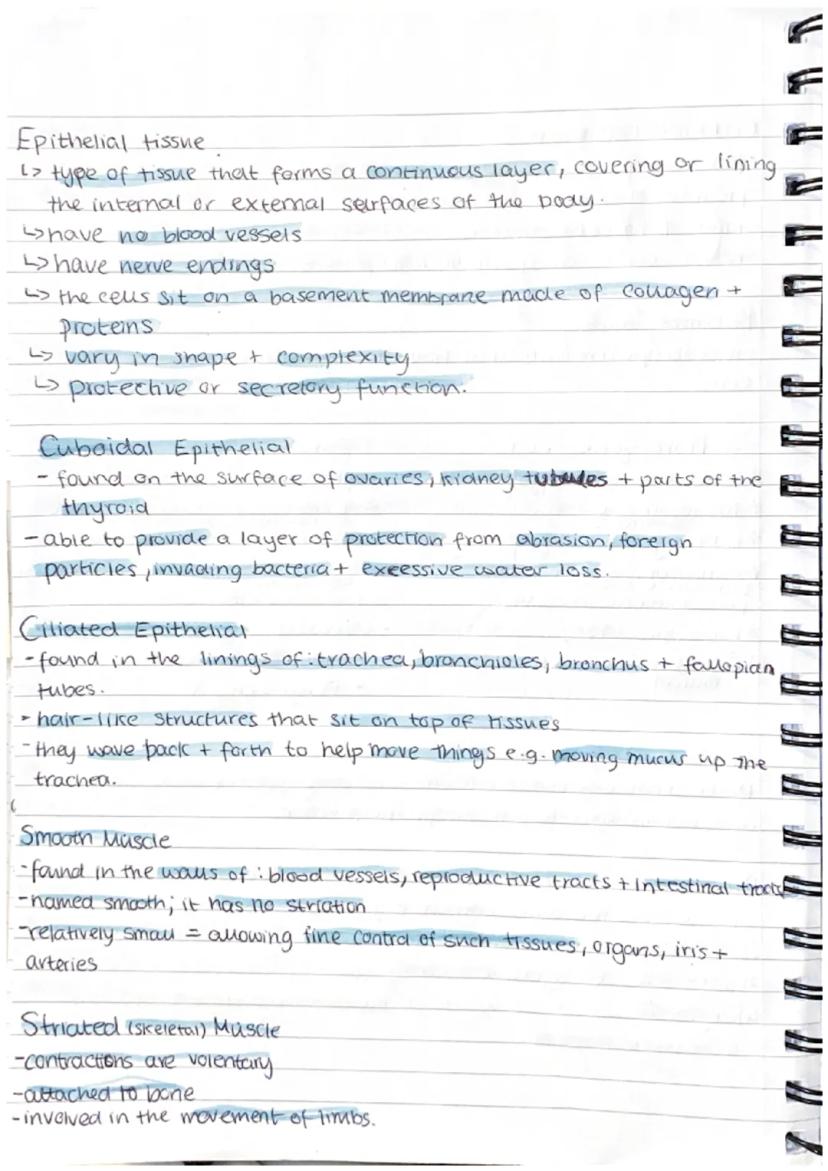 Epithelial tissue
↳ type of tissue that forms a continuous layer, covering or lining
the internal or external surfaces of the body.
↳ have no blood vessels
↳ have nerve endings
↳ the cells sit on a basement membrane made of collagen +
proteins
↳ vary in shape + complexity
↳ protective or secretory function.
Cuboidal Epithelial
- found on the surface of ovaries, kidney tubules + parts of the
thyroid
- able to provide a layer of protection from abrasion, foreign
particles, invading bacteria + excessive water loss.
Ciliated Epithelial
- found in the linings of: trachea, bronchioles, bronchus + fallopian
tubes.
- hair-like structures that sit on top of tissues
- they wave back + forth to help move things e.g. moving mucus up the
trachea.
Smooth Muscle
- found in the walls of: blood vessels, reproductive tracts + intestinal tracts
- named smooth; it has no striation
- relatively small = allowing fine control of such tissues, organs, iris +
arteries
Striated (skeletal) Muscle
- contractions are volentary
- attached to bone
- involved in the movement of limbs.